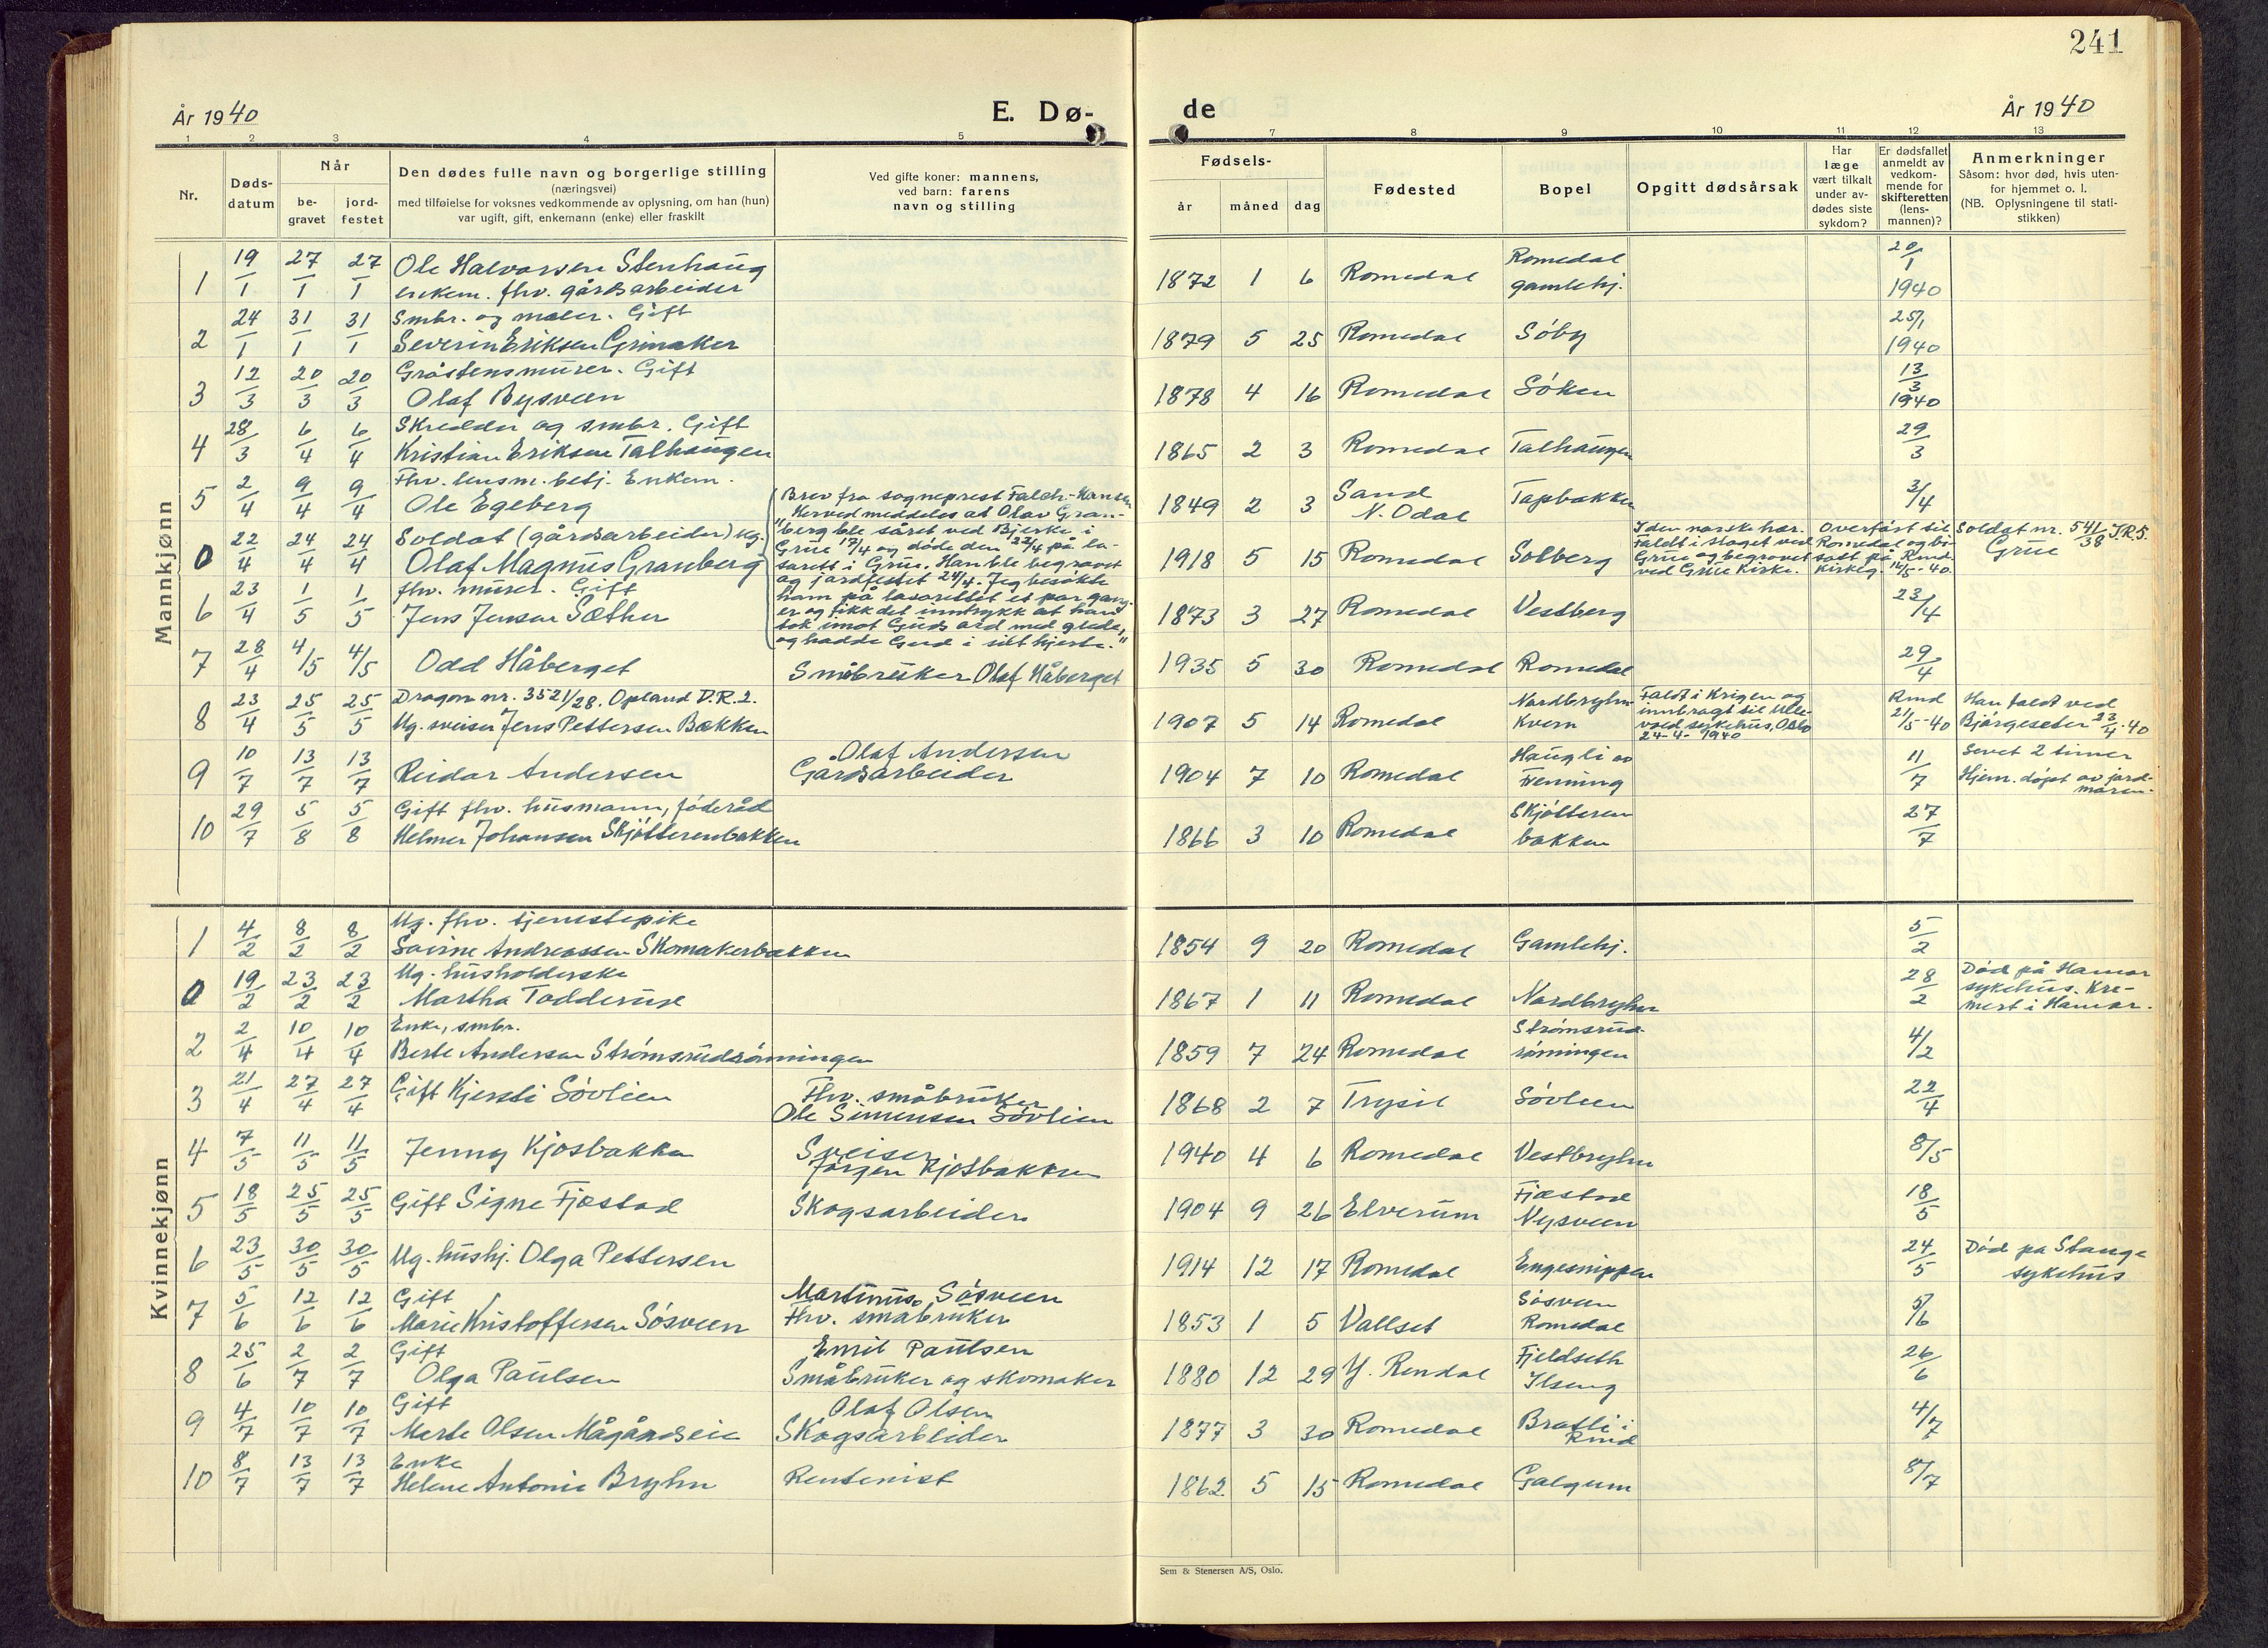 241
År 1940
E. Dø-
de
År 1940
1 2 3 4 5 7 8 9 10 11 12 13
Nr.
Døds-
datum
Når
be-
gravet
jord-
festet
Den dødes fulle navn og borgerlige stilling
(næringsvei)
med tilføielse for voksnes vedkommende av oplysning, om han (hun)
var ugift, gift, enkemann (enke) eller fraskilt
Ved gifte koner: mannens,
ved barn: farens
navn og stilling
Fødsels-
år måned dag
Fødested
Bopel
Opgitt dødsårsak
Har
læge
vært tilkalt
under av-
dødes siste
sykdom?
Er dødsfallet
anmeldt av
vedkom-
mende for
skifteretten
(lens-
mannen)?
Anmerkninger
Såsom: hvor død, hvis uten-
for hjemmet o. l.
(NB. Oplysningene til stati-
stikken)
Mannkjønn
1 19/1 27/1 27/1 Ole Halvorsen Stenhaug
enkem. fhv. gårdsarbeider
1872 1 6 Romedal Romedal
gamlehj.
20/1
1940
2 24/1 31/1 31/1 Smbr. og maler. Gift
Severin Eriksen Grimaker
1879 5 25 Romedal Søby 25/1
1940
3 12/3 20/3 20/3 Gråstensmurer. Gift
Olaf Bysveen
1878 4 16 Romedal Søken 13/3
1940
4 28/3 6/4 6/4 Skredder og smbr. Gift
Kristian Eriksen Talhaugen
1865 2 3 Romedal Talhaugen 29/3
5 2/4 9/4 9/4 Fhv. lensm. betj. Enkem.
Ole Egeberg
1849 2 3 Sand
N. Odal
Tapbakken 3/4
0 22/4 24/4 24/4 Soldat (gårdsarbeider) ug.
Olaf Magnus Granberg
Brev fra sogneprest Falch-Hansen
"Herved meddeles at Olav Gran-
berg ble såret ved Bjerke i
Grue 17/4 og døde den 22/4 på la-
sarett i Grue. Han ble begravet
og jordfestet 24/4. Jeg besøkte
ham på lasarettet et par gang-
er og fikk det inntrykk at han
tok imot Guds ord med glede,
og hadde Gud i sitt hjerte."
1918 5 15 Romedal Solberg
I den norske hær.
Faldt i slaget ved
Grue og begravet
ved Grue Kirke.
Overført til
Romedal og bi-
satt på Rmd.
kirkeg. 16/5-40.
Soldat nr. 541/38 I.R.5.
Grue
6 23/4 1/5 1/5 fhv. murer. Gift
Jens Jensen Sæther
1873 3 27 Romedal Vestberg 23/4
7 28/4 4/5 4/5 Odd Håberget
Småbruker Olaf Håberget
1935 5 30 Romedal Romedal 29/4
8 23/4 25/5 25/5 Dragon nr. 3521/28. Opland D.R.2.
Ug. sveiser Jens Pettersen Bækken
1907 5 14 Romedal Nordbryhn
Kvern
Faldt i Krigen og
innbragt til Ulle-
vold sykehus, Oslo
24-4-1940
Rmd
21/5-40
Han faldt ved
Bjørgeseter 23/4-40
9 10/7 13/7 13/7 Reidar Andersen
Olaf Andersen
Gårdsarbeider
1904 7 10 Romedal Haugli av
Fenning
11/7
Levet 2 timer
Hjem. døpt av jord-
moren.
10 29/7 5/8 5/8 Gift fhv. husmann, føderåd
Helmer Johansen Skjøtterenbakken
1866 3 10 Romedal Skjøtteren
bakken
27/7
Kvinnekjønn
1 4/2 8/2 8/2 Ug. fhv. tjenestepike
Andreassen Skomakerbakken
1854 9 20 Romedal Gamlehj. 5/2
0 19/2 23/2 23/2 Ug. husholderske
Martha Todderud
1867 1 11 Romedal Nordbryhn 28/2
Død på Hamar
sykehus. Kre-
mert i Hamar.
2 2/4 10/4 10/4 Enke, smbr.
Berte Andersen Strømsrudrønningen
1859 7 24 Romedal Strømsrud-
rønningen
4/2
3 21/4 27/4 27/4 Gift Kjersti Søvlien
Fhv. småbruker
Ole Simensen Søvlien
1868 2 7 Trysil Søvlien 22/4
4 7/5 11/5 11/5 Jenny Kjosbakken
Sveiser
Jørgen Kjosbakken
1940 4 6 Romedal Vestbryhn 8/5
5 18/5 25/5 25/5 Gift Signe Fjæstad
Skogsarbeider
1904 9 26 Elverum Fjæstad
Nysveen
18/5
6 23/5 30/5 30/5 Ug. hushj. Olga Pettersen
1914 12 17 Romedal Engesnippen 24/5
Død på Stange
sykehus
7 5/6 12/6 12/6 Gift
Marie Kristoffersen Søsveen
Martinus Søsveen
Fhv. småbruker
1853 1 5 Vallset Søsveen
Romedal
5/6
8 25/6 2/7 2/7 Gift
Olga Paulsen
Emil Paulsen
Småbruker og skomaker
1880 12 29 Y. Rendal Fjeldseth
Ilseng
26/6
9 4/7 10/7 10/7 Gift
Marte Olsen Mågårdseie
Olaf Olsen
Skogsarbeider
1877 3 30 Romedal Bratli i
Rmd
4/7
10 8/7 13/7 13/7 Enke
Helene Antonie Bryhn
Rentenist
1862 5 15 Romedal Galgum 8/7
Sem & Stenersen A/S, Oslo.